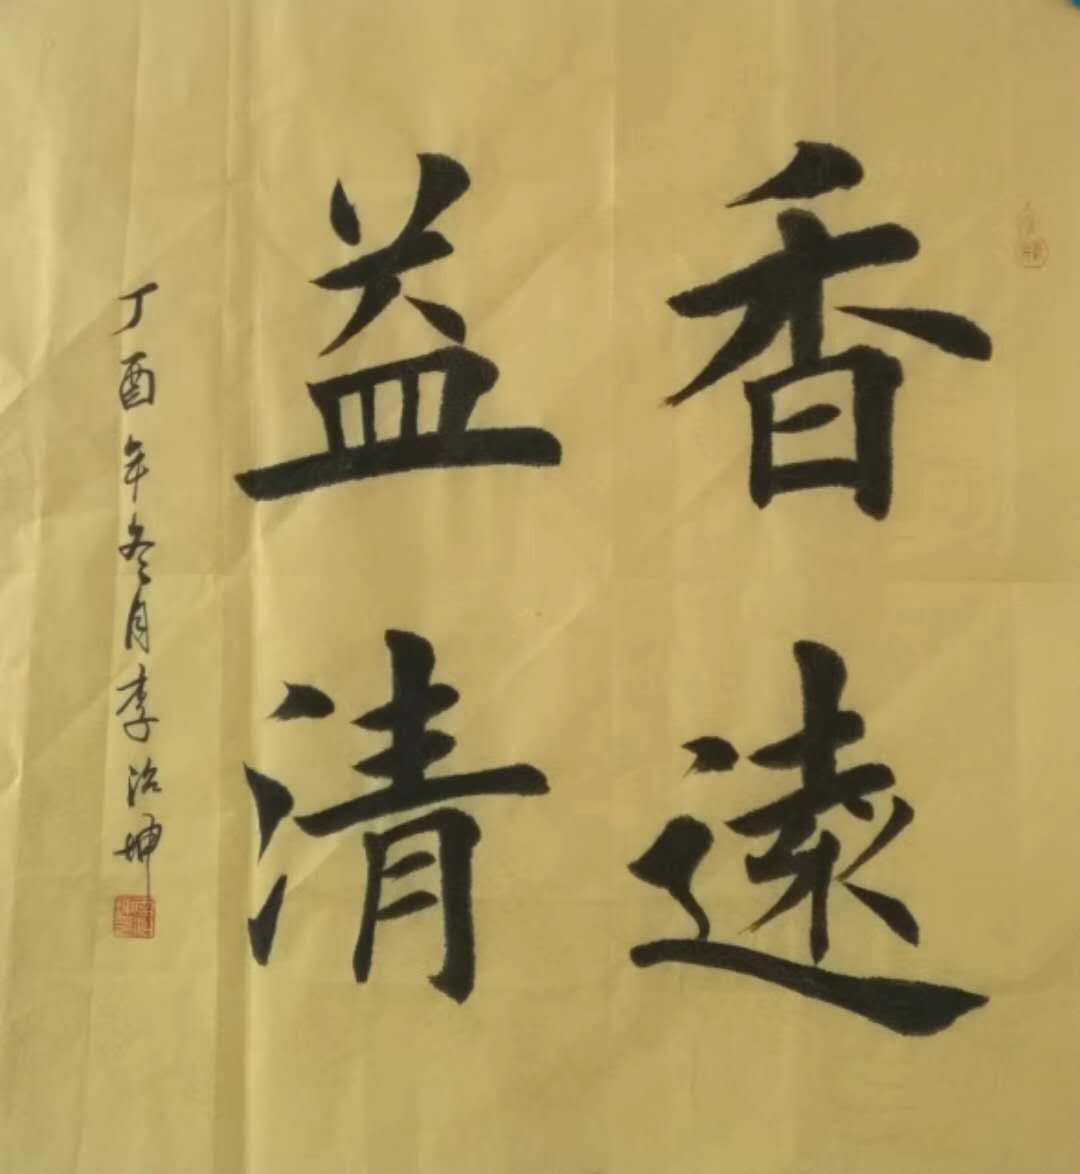 香遠
益清
丁酉年冬月李治坤